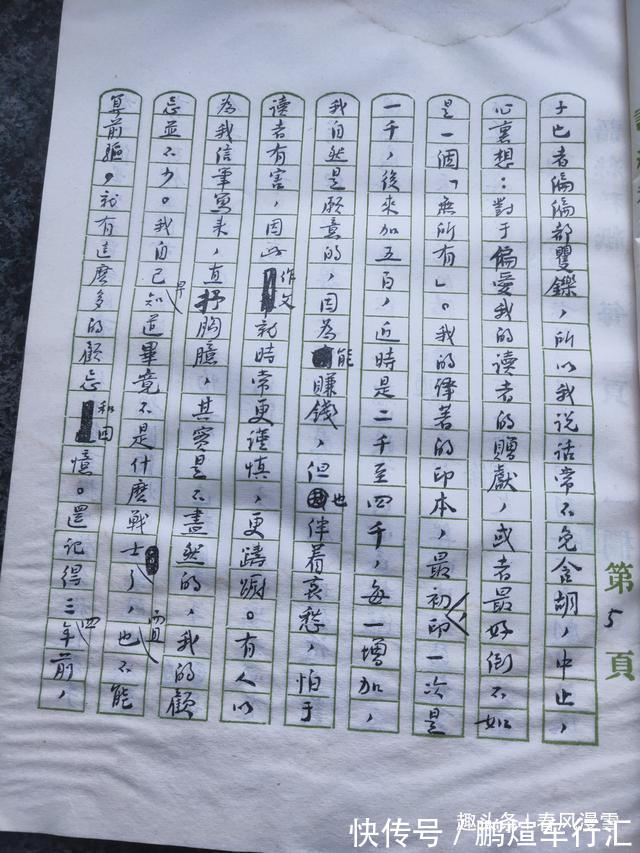 子也者偏偏都矍鑠，所以我说话常不免含胡，中止，
心裏想：對于偏愛我的读者的贈獻，或者最好倒不如
是一個「無所有」。我的譯著的印本，最初，印一次是
一千，後來加五百，近時是二千至四千，每一增加，
我自然是願意的，因為能賺錢，但也伴着哀愁，怕于
读者有害，因此作文就時常更謹慎，更躊躇。有人以
為我信筆寫来，直抒胸臆，其實是不盡然的，我的顧
忌並不少。我自己早知道畢竟不是什麽戰士了，而且也不能
算前驅，就有這麽多的顧忌和回憶。還记得三四年前，
第5頁
趣头条｜春风漫雪
快传号／鹏煊车行汇